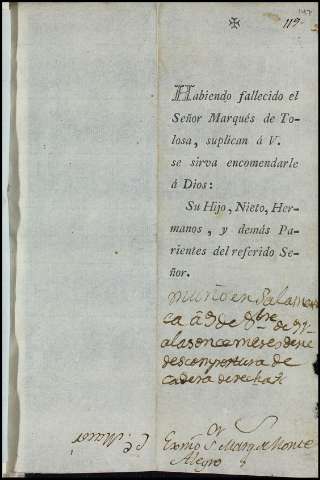 119.
Habiendo fallecido el
Señor Marqués de To-
losa, suplican á V.
se sirva encomendarle
á Dios:
Su Hijo, Nieto, Her-
manos, y demás Pa-
rientes del referido Se-
ñor.
murió en Salaman
ca á 9 de 8bre de 91
a las once meses de
descompostura de
cadera derecha
Exmo Sr Marqs de Monte
Alegre